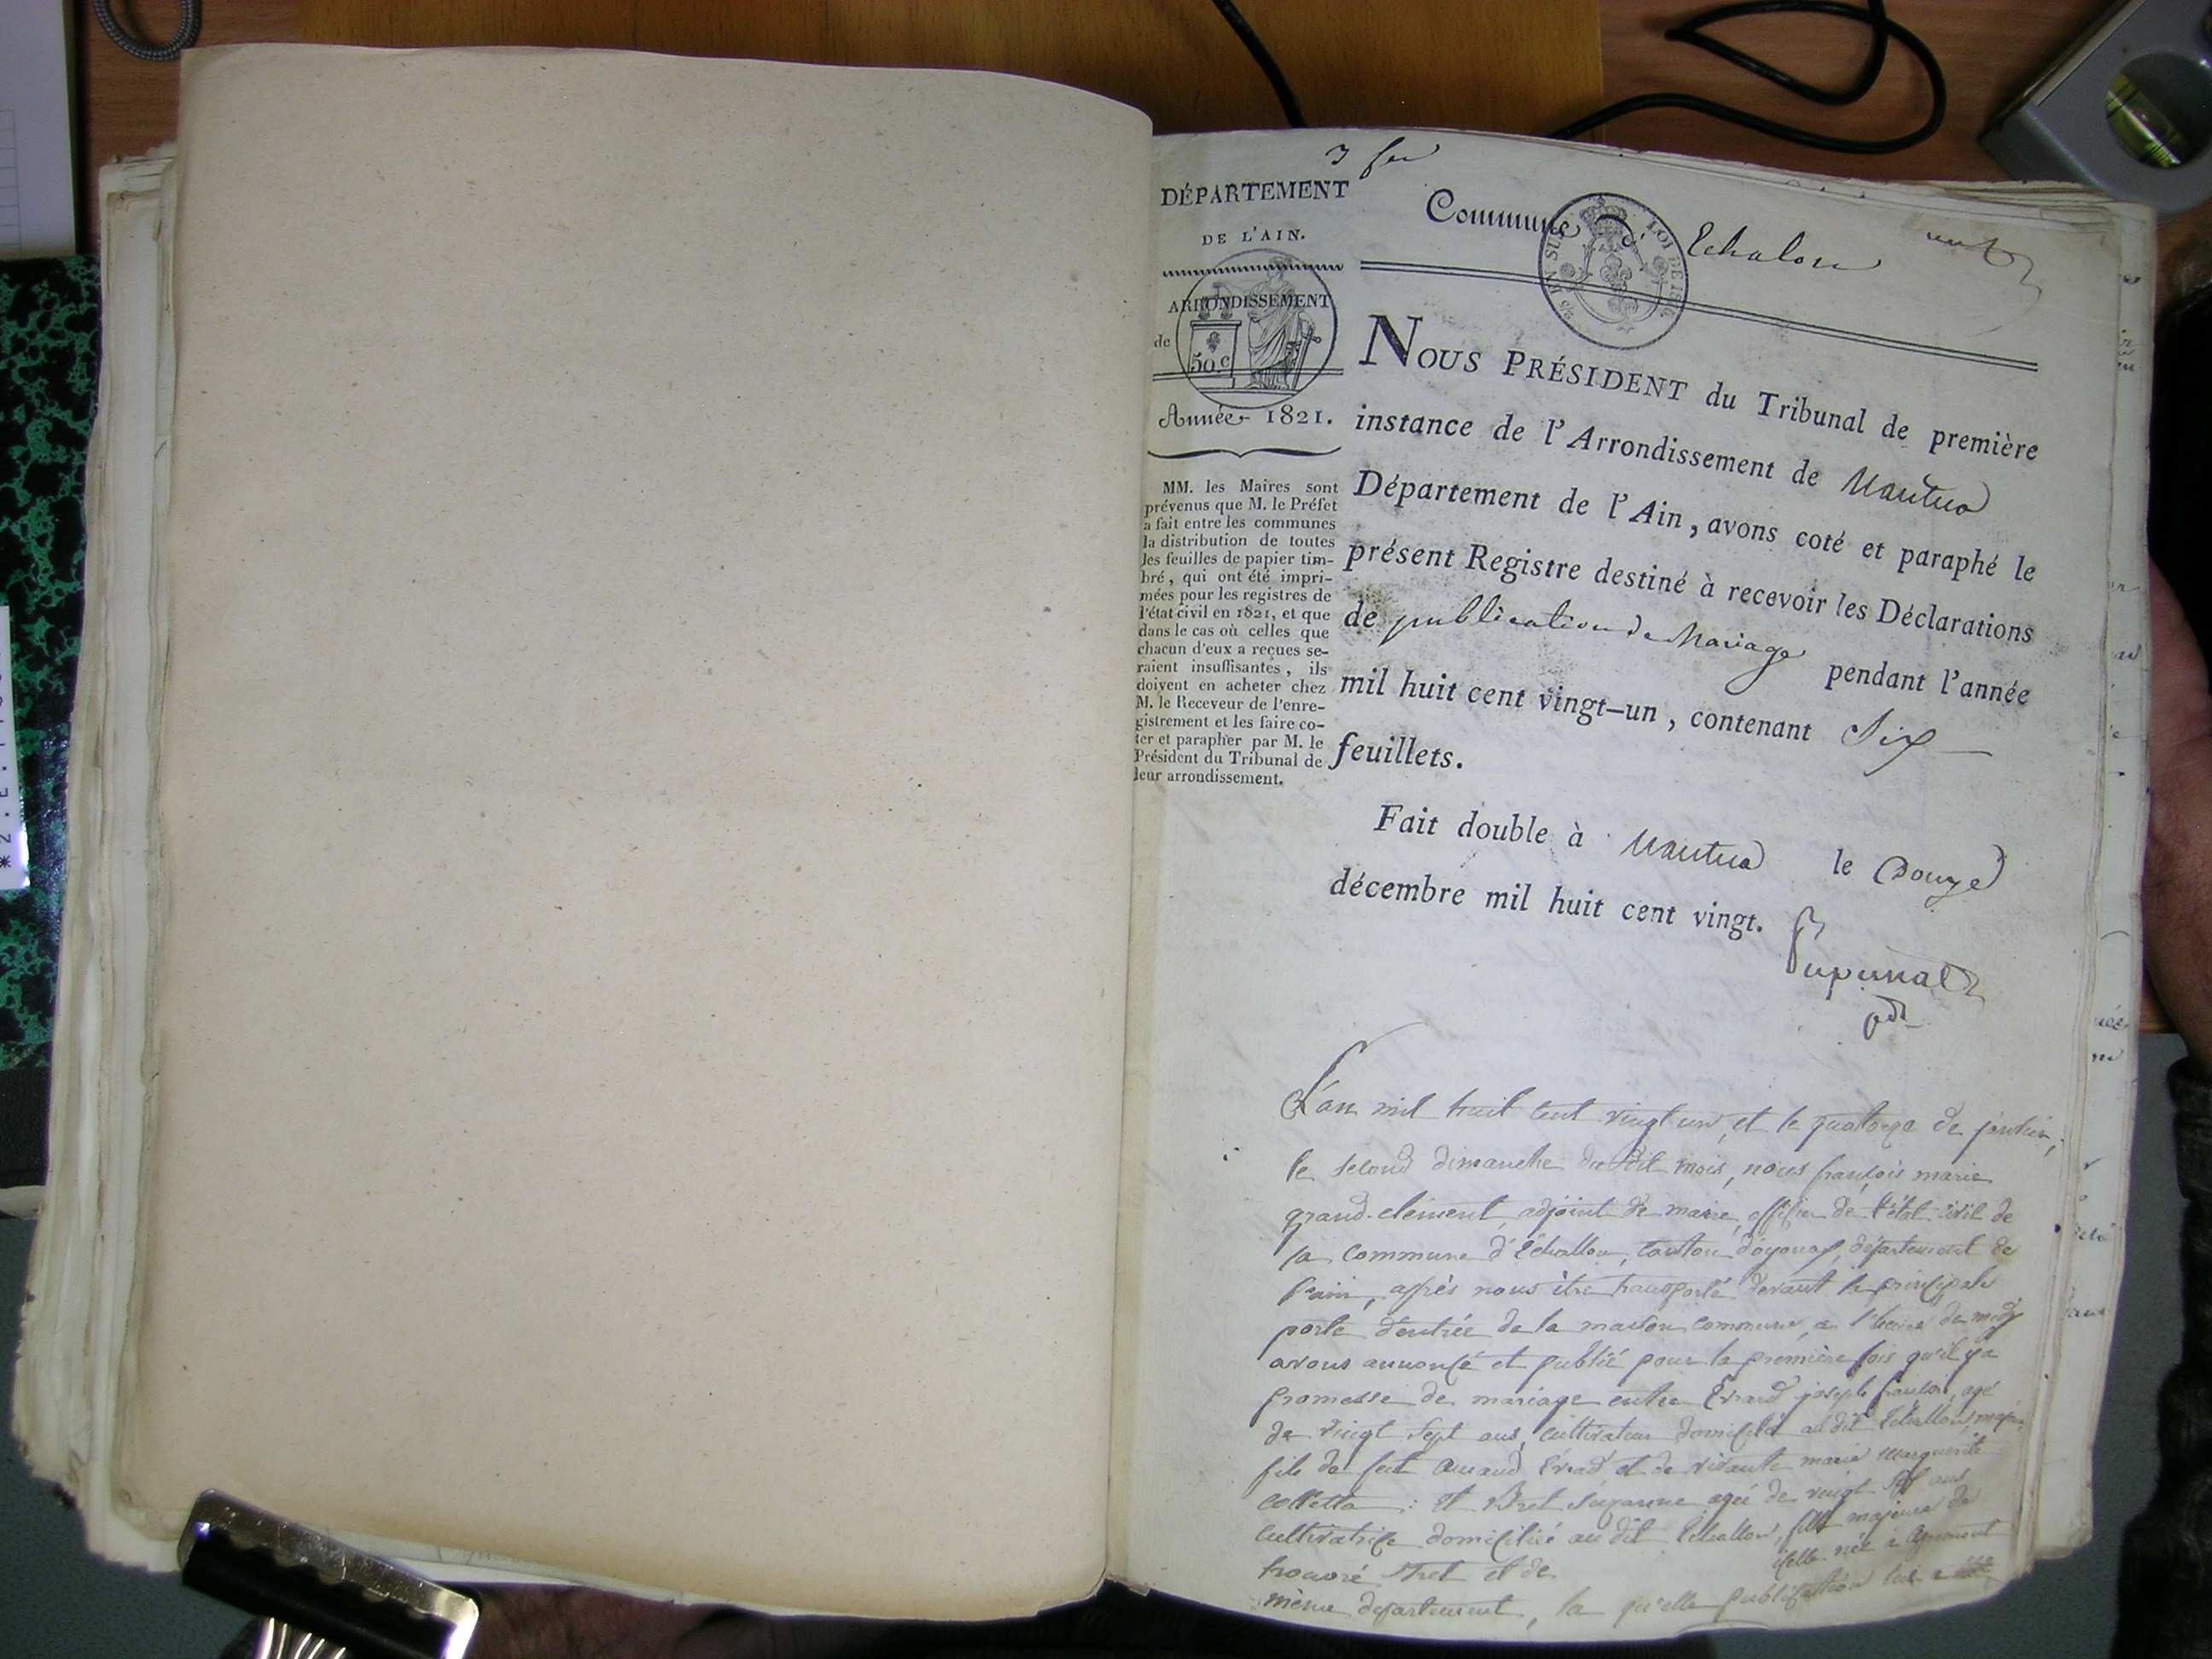 3 feu
DÉPARTEMENT
DE L'AIN.
ARRONDISSEMENT
de
50 c
Année 1821.
MM. les Maires sont
prévenus que M. le Préfet
a fait entre les communes
la distribution de toutes
les feuilles de papier tim-
bré, qui ont été impri-
mées pour les registres de
l'état civil en 1821, et que
dans le cas où celles que
chacun d'eux a reçues se-
raient insuffisantes, ils
doivent en acheter chez
M. le Receveur de l'enre-
gistrement et les faire co-
ter et parapher par M. le
Président du Tribunal de
leur arrondissement.
Commune d' Echalon
LOI DE
NOUS PRÉSIDENT du Tribunal de première
instance de l'Arrondissement de Nantua
Département de l'Ain, avons coté et paraphé le
présent Registre destiné à recevoir les Déclarations
de publication de Mariage pendant l'année
mil huit cent vingt-un, contenant Six
feuillets.
Fait double à Nantua le Douze
décembre mil huit cent vingt.
L'an mil huit cent vingt un, et le quatorze de janvier,
le second dimanche du dit mois, nous françois marie
grand-clément, adjoint de maire, officier de l'état civil de
la commune d'Échallon, canton d'oyonax, département de
l'ain, après nous être transporté devant la principale
porte d'entrée de la maison commune, a l'heure de midy
avons annoncé et publié pour la première fois qu'il y a
promesse de mariage entre Évrard joseph françois, agé
de vingt sept ans, cultivateur domicilié au dit Echallon,
fils de feu Évrad et de vivante marie marguerite
colletta : et suzanne agée de vingt ans
cultivatrice domiciliée au dit Échallon, fille majeure de
honoré et de icelle née a
même departement, la qu'elle publication